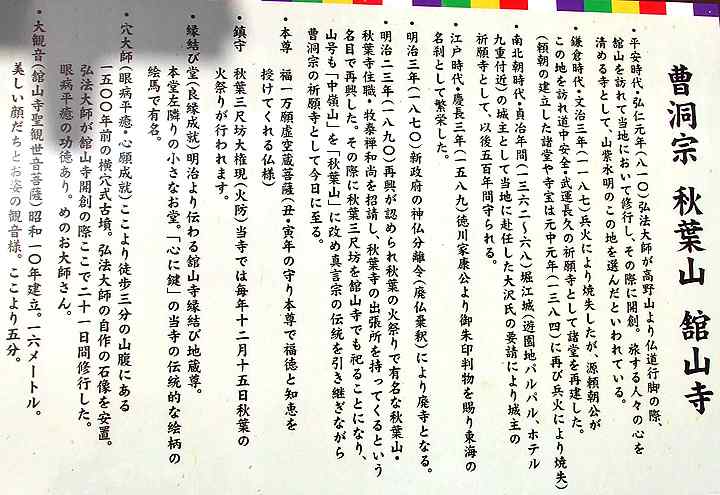 曹洞宗 秋葉山 舘山寺
・平安時代・弘仁元年(八一〇)弘法大師が高野山より仏道行脚の際、
舘山を訪れて当地において修行し、その際に開創。旅する人々の心を
清める寺として、山紫水明のこの地を選んだといわれている。
・鎌倉時代・文治三年(一一八七)兵火により焼失したが、源頼朝公が
この地を訪れ道中安全・武運長久の祈願寺として諸堂を再建した。
(頼朝の建立した諸堂や寺宝は元中元年(一三八四)に再び兵火により焼失)
・南北朝時代・貞治年間(一三六二~六八)堀江城(遊園地パルパル、ホテル
九重付近)の城主として当地に赴任した大沢氏の要請により城主の
祈願寺として、以後五百年間守られる。
・江戸時代・慶長三年(一五八九)徳川家康公より御朱印判物を賜り東海の
名刹として繁栄した。
・明治三年(一八七〇)新政府の神仏分離令(廃仏棄釈)により廃寺となる。
・明治二三年(一八九〇)再興が認められ秋葉の火祭りで有名な秋葉山・
秋葉寺住職・牧泰禅和尚を招請し、秋葉寺の出張所を持ってくるという
名目で再興した。その際に秋葉三尺坊を舘山寺でも祀ることになり、
山号も「中嶺山」を「秋葉山」に改め真言宗の伝統を引き継ぎながら
曹洞宗の祈願寺として今日に至る。
・本尊 福一万願虚空蔵菩薩(丑・寅年の守り本尊で福徳と知恵を
授けてくれる仏様)
・鎮守 秋葉三尺坊大権現(火防)当寺では毎年十二月十五日秋葉の
火祭りが行われます。
・縁結び堂(良縁成就)明治より伝わる舘山寺縁結び地蔵尊。
本堂左隣りの小さなお堂。「心に鍵」の当寺の伝統的な絵柄の
絵馬で有名。
・穴大師(眼病平癒・心願成就)ここより徒歩三分の山腹にある
一五〇〇年前の横穴式古墳。弘法大師の自作の石像を安置。
弘法大師が舘山寺開創の際ここで二十一日間修行した。
眼病平癒の功徳あり。めのお大師さん。
・大観音(舘山寺聖観世音菩薩)昭和一〇年建立。一六メートル。
美しい顔だちとお姿の観音様。ここより五分。